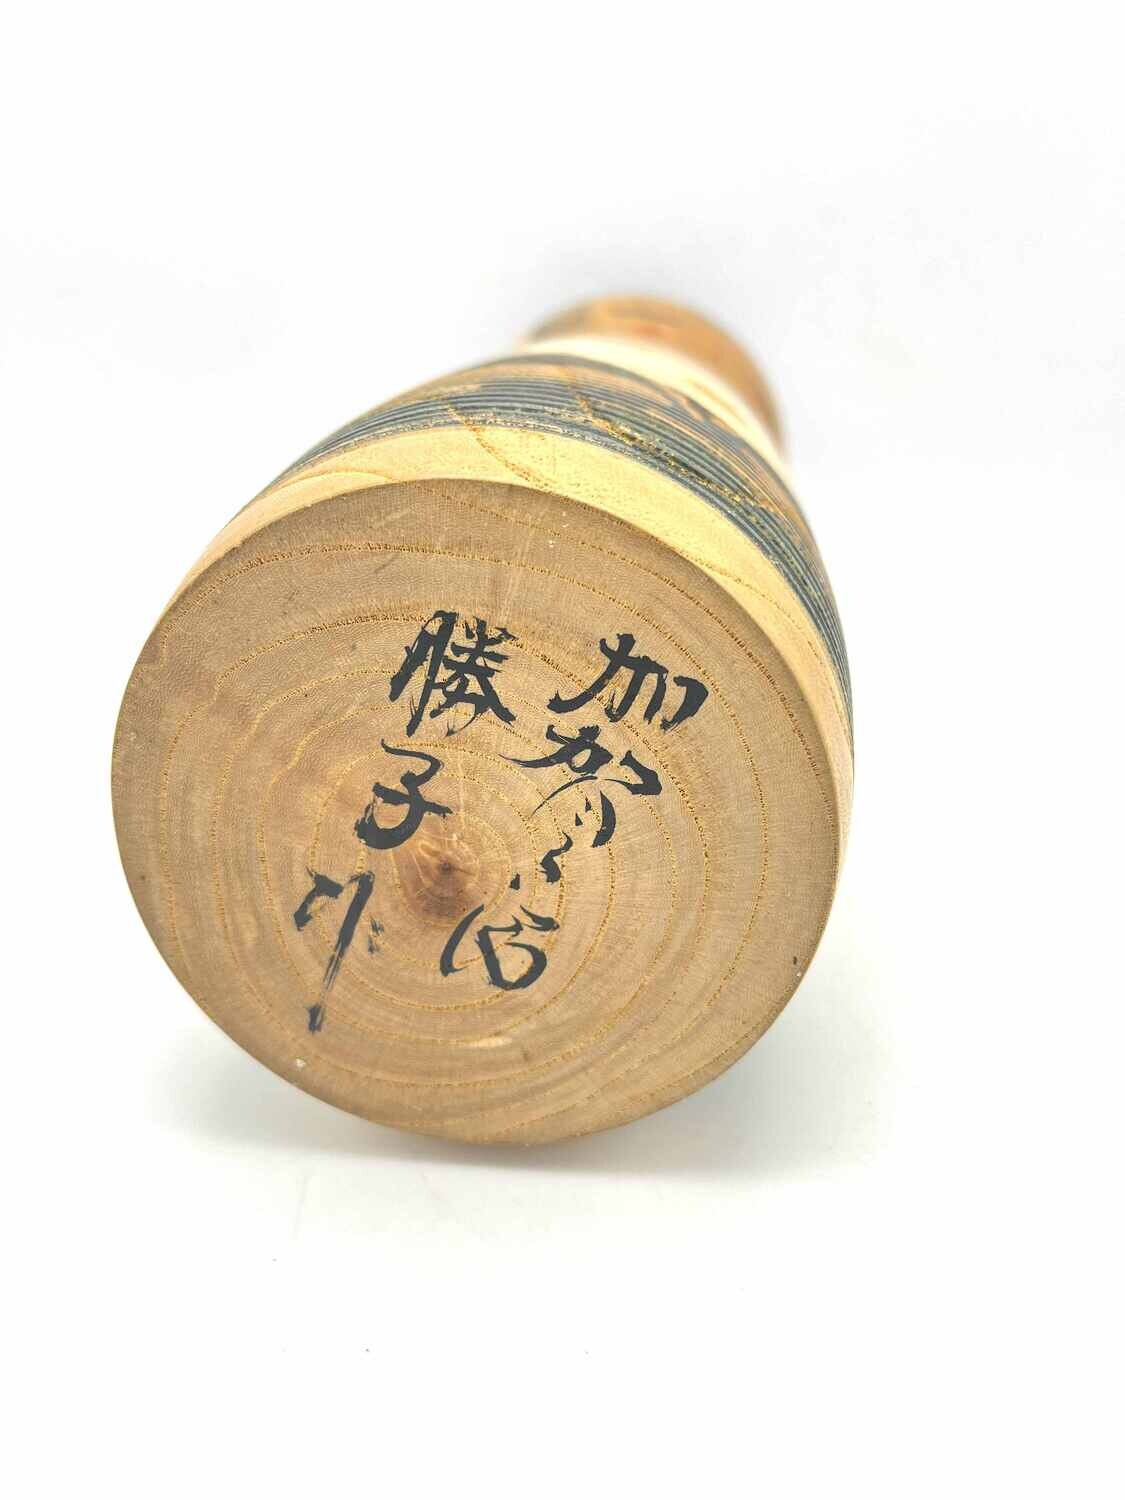 加賀谷
勝子作